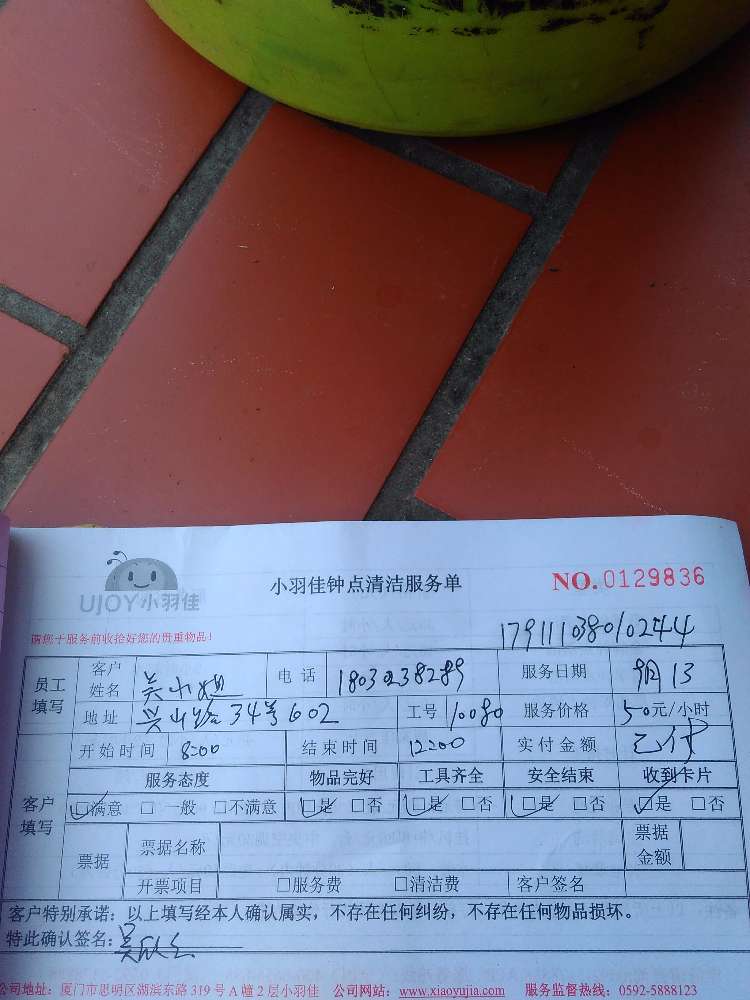 UJOY小羽佳
小羽佳钟点清洁服务单
NO.0129836
请您于服务前收拾好您的贵重物品!
179111038010244
员工填写 客户姓名 吴小姐 电话 18030238289 服务日期 9月13
地址 兴山路34号602 工号 10080 服务价格 50元/小时
开始时间 8:00 结束时间 12:00 实付金额 已付
客户填写 服务态度 物品完好 工具齐全 安全结束 收到卡片
□满意 □一般 □不满意 □是 □否 □是 □否 □是 □否 □是 □否
票据 票据名称 票据金额
开票项目 □服务费 □清洁费 客户签名
客户特别承诺:以上填写经本人确认属实,不存在任何纠纷,不存在任何物品损坏。
特此确认签名:吴
公司地址:厦门市思明区湖滨东路319号A幢2层小羽佳 公司网站:www.xiaoyujia.com 服务监督热线:0592-5888123